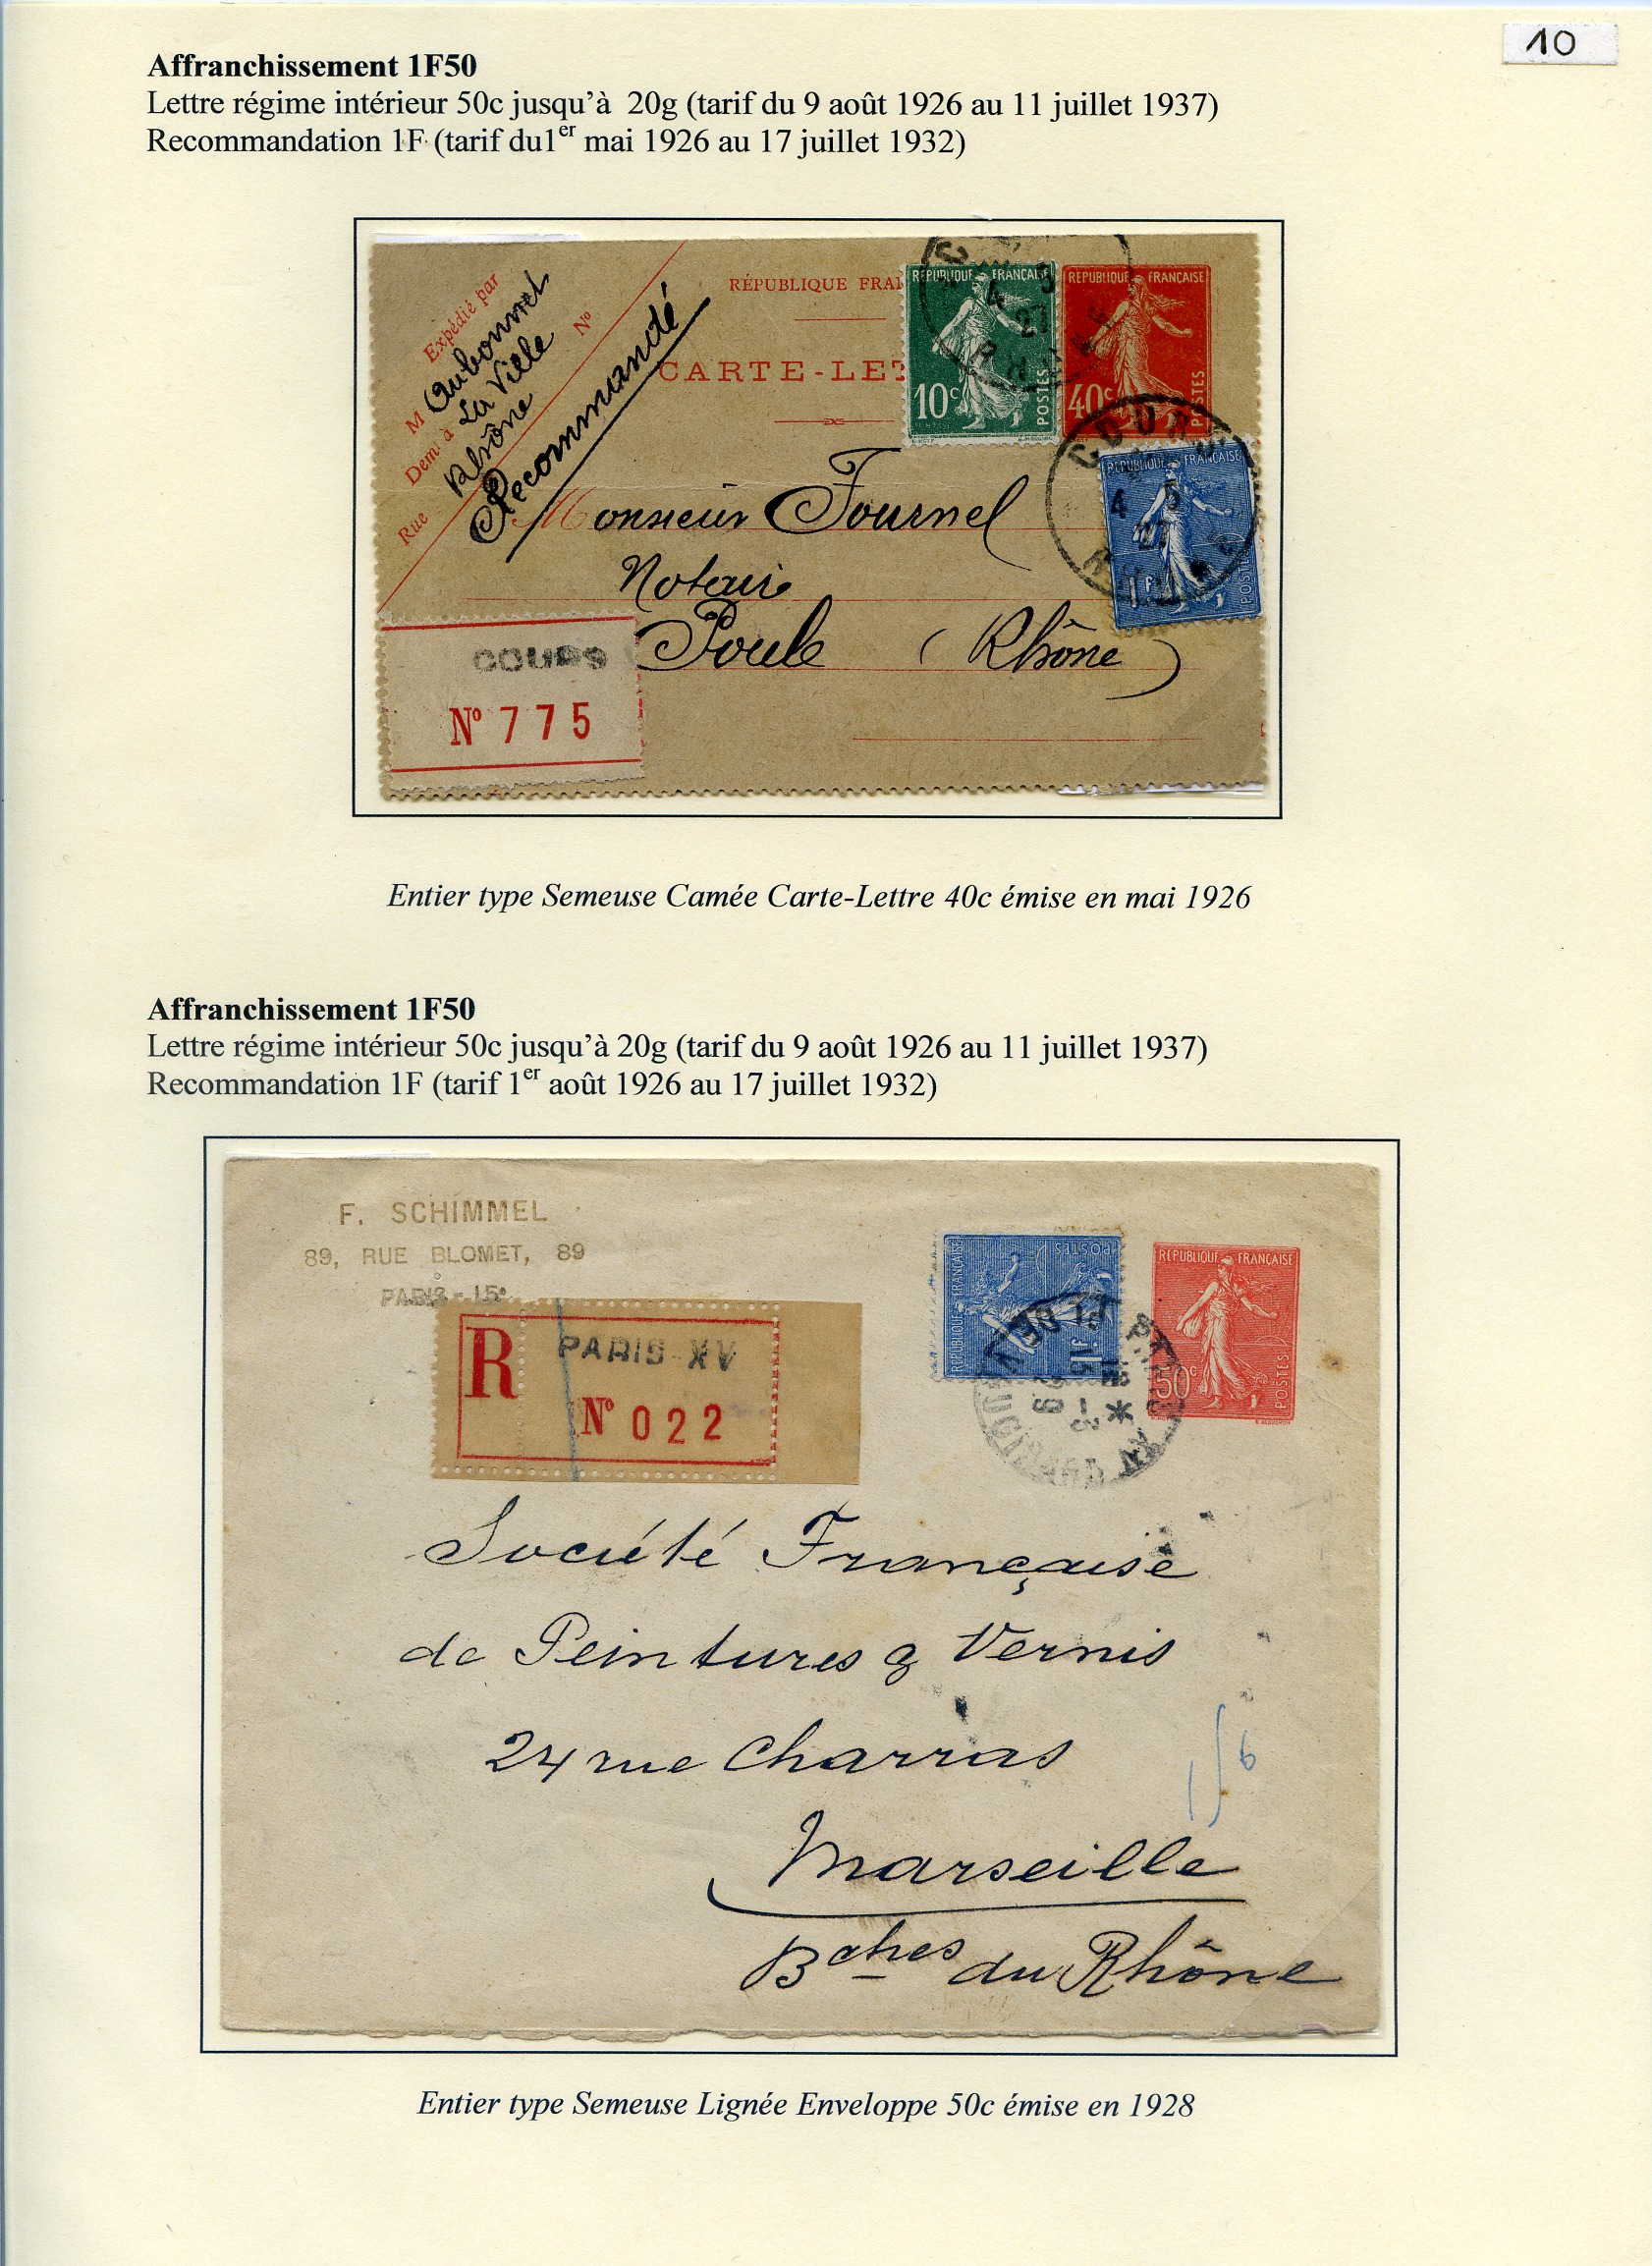 10
Affranchissement 1F50
Lettre régime intérieur 50c jusqu’à  20g (tarif du 9 août 1926 au 11 juillet 1937)
Recommandation 1F (tarif du1er mai 1926 au 17 juillet 1932)
Expédié par
M Aubonnel
Demt à La Ville
Rhône
Rue
No
Recommandé
RÉPUBLIQUE FRAN
CARTE-LET
RÉPUBLIQUE FRANÇAISE
10c
POSTES
RÉPUBLIQUE FRANÇAISE
40c
POSTES
RÉPUBLIQUE FRANÇAISE
1F
POSTES
COURS
4 5
27
Monsieur Fournel
Notaire
Poule (Rhône)
COURS
No 775
Entier type Semeuse Camée Carte-Lettre 40c émise en mai 1926
Affranchissement 1F50
Lettre régime intérieur 50c jusqu’à 20g (tarif du 9 août 1926 au 11 juillet 1937)
Recommandation 1F (tarif 1er août 1926 au 17 juillet 1932)
F. SCHIMMEL
89, RUE BLOMET, 89
PARIS-15e
R
PARIS XV
No 022
RÉPUBLIQUE FRANÇAISE
POSTES
1F
RÉPUBLIQUE FRANÇAISE
50c
POSTES
PARIS XV
Société Française
de Peintures & Vernis
24 rue Charras
Marseille
Bches du Rhône
Entier type Semeuse Lignée Enveloppe 50c émise en 1928